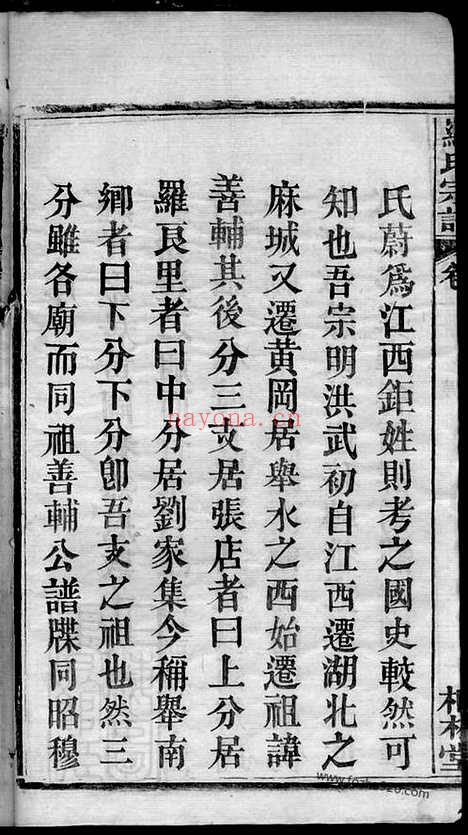 羅氏宗譜 卷
柏林堂
氏蔚爲江西鉅姓則考之國史較然可
知也吾宗明洪武初自江西遷湖北之
麻城又遷黃岡居舉水之西始遷祖諱
善輔其後分三支居張店者曰上分居
羅良里者曰中分居劉家集今稱舉南
鄉者曰下分下分卽吾支之祖也然三
分雖各廟而同祖善輔公譜牒同昭穆
nayona.cn